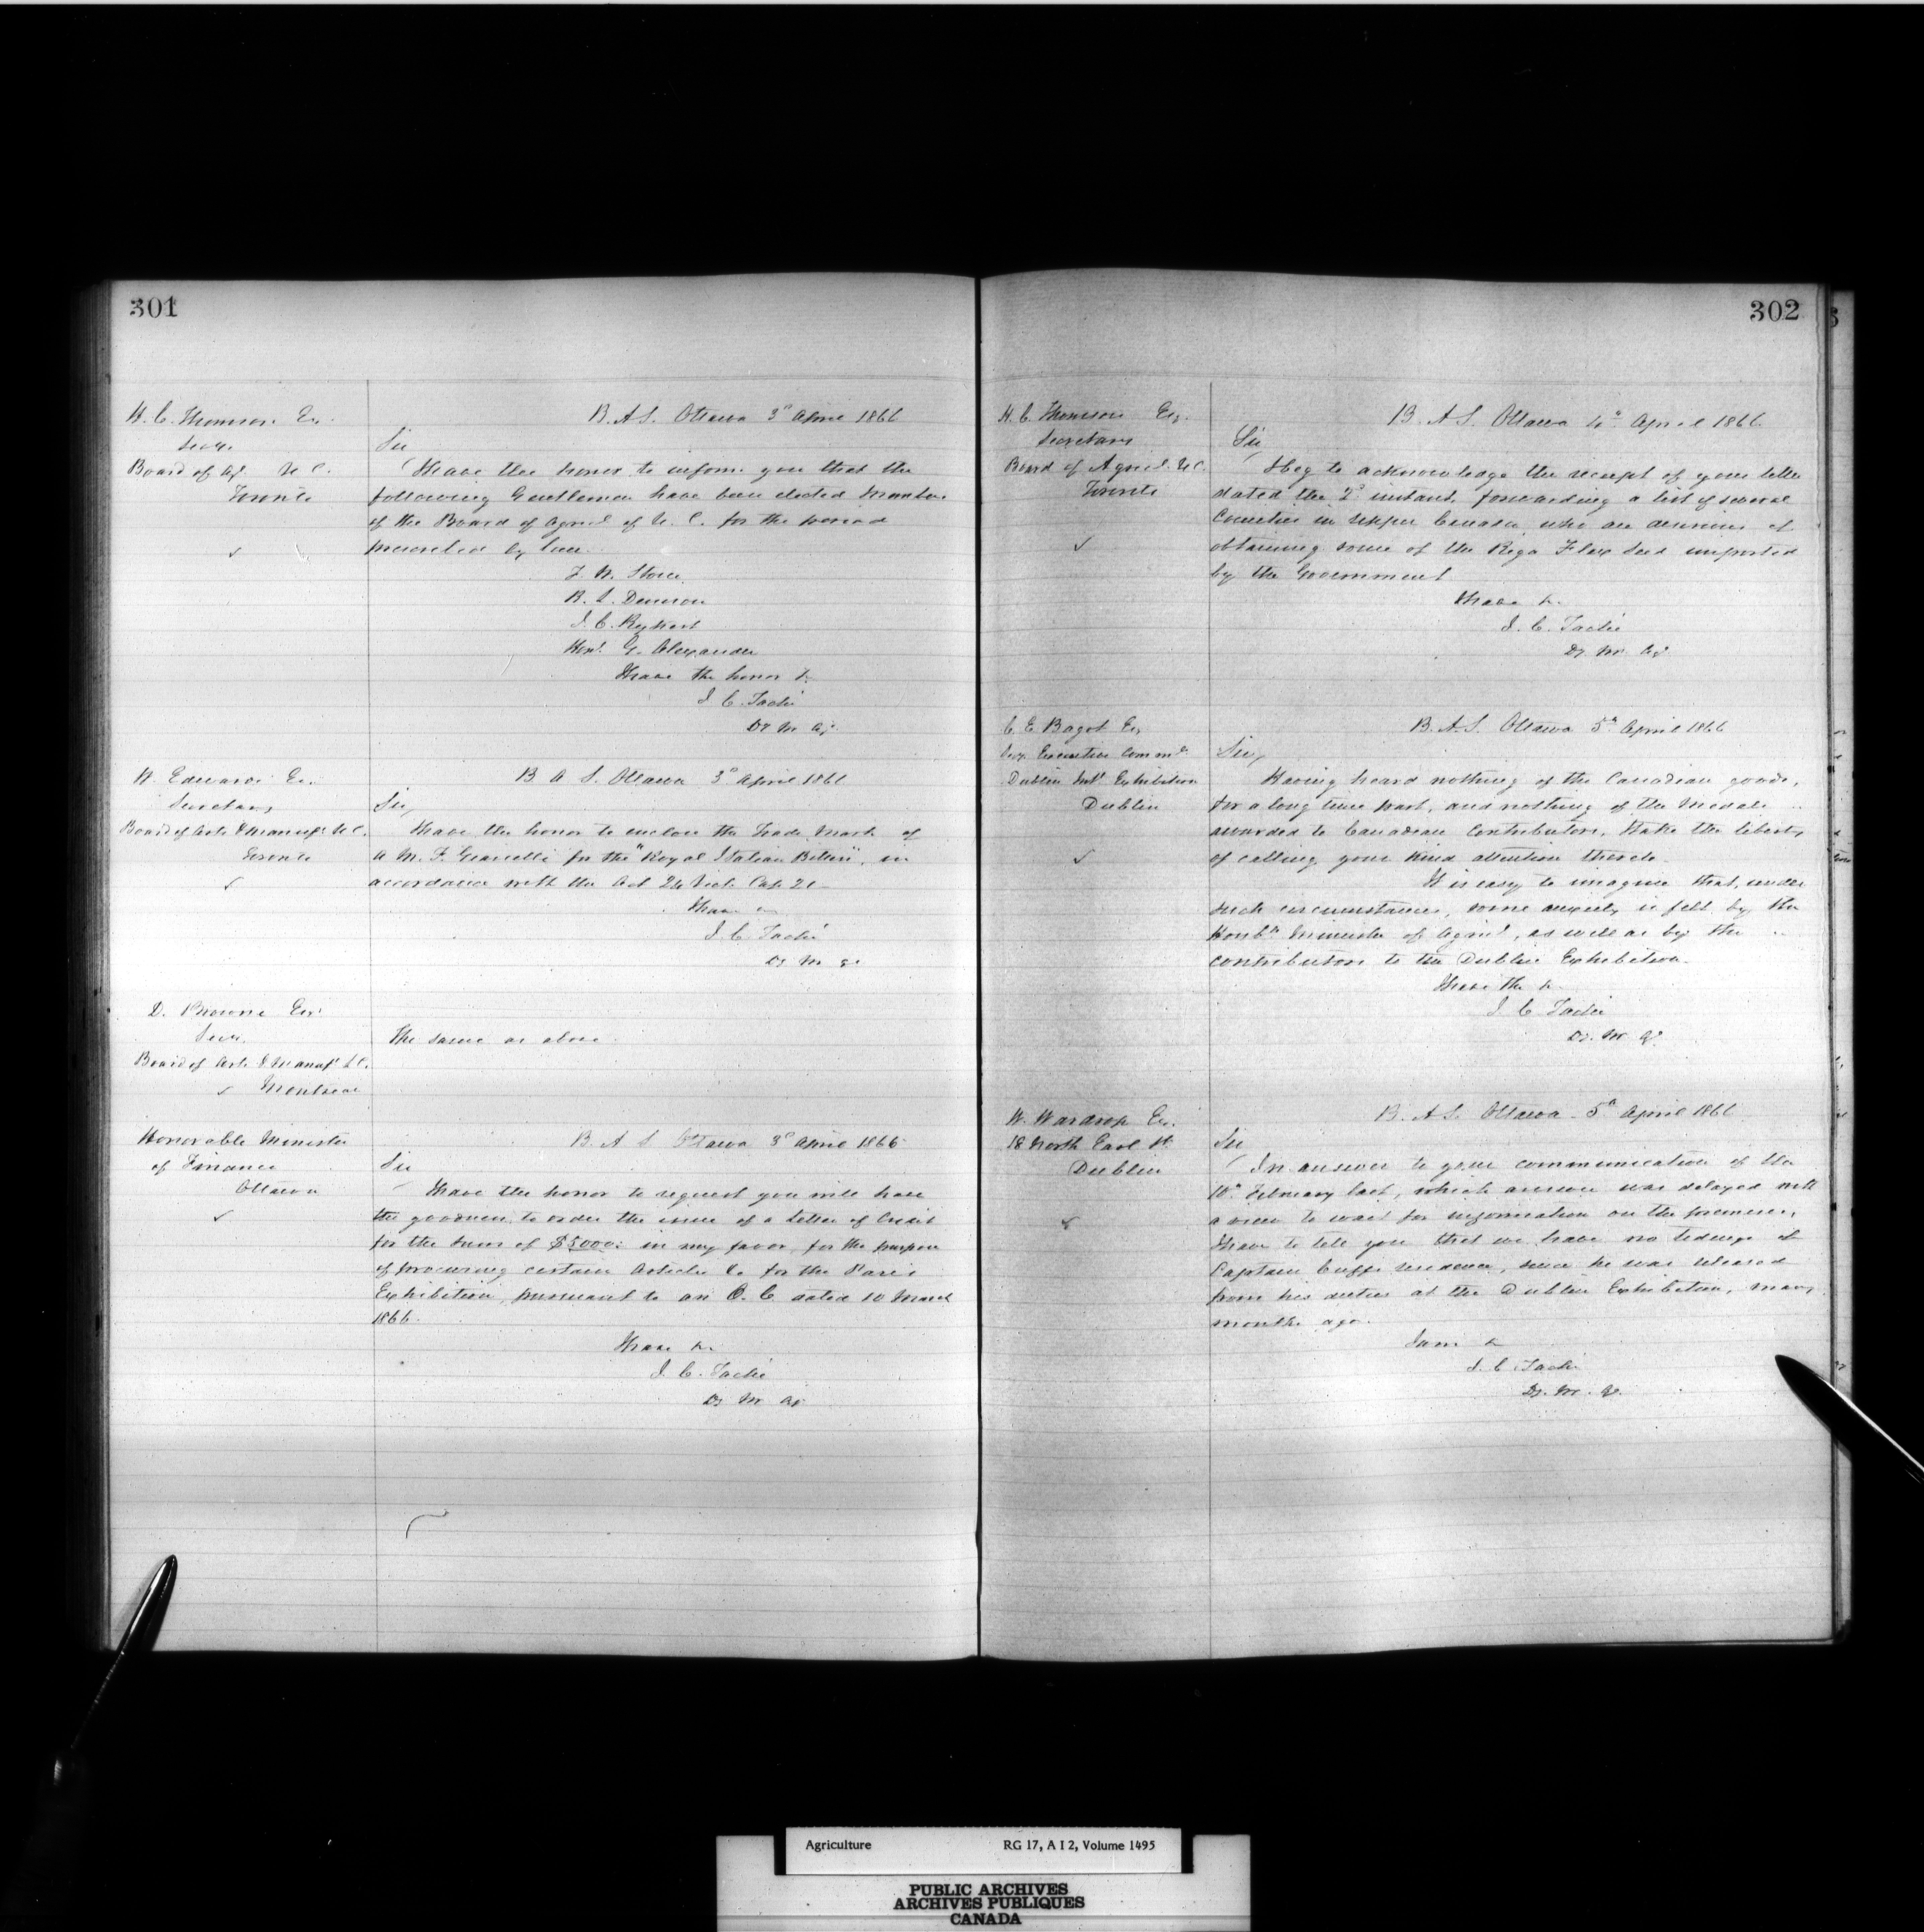 301
H. C. Thomson Er.
Secy.
Board of Ag. U C.
Toronto
B. A S. Ottawa 3d April 1866
Sir
I have the honor to inform you that the
following Gentlemen have been elected Members
of the Board of Agricl of U. C. for the period
prescribed by law.
F. W. Stone
R. L. Denison
J. C. Rykert
Honl G. Alexander
I have the honor &c
J. C. Taché
Dy M. Ag.
W. Edwards Er.
Secretary
Board of Arts & Manufs U C.
Toronto
B A S. Ottawa 3d April 1866
Sir,
I have the honor to enclose the Trade Mark of
A M. F. for the "Royal Italian Bitters", in
accordance with the Act 24 Vict. Cap. 21
I have &c
J. C. Taché
Dy M.
D. Browne Esr
Secr.
Board of Arts & Manufs L C.
Montreal
The same as above.
Honorable Minister
of Finance
Ottawa
B. A S Ottawa 3d April 1866
Sir
I have the honor to request you will have
the goodness to order the issue of a Letter of Credit
for the sum of $5000: in my favor, for the purpose
of procuring certain Articles &c for the Paris
Exhibition, pursuant to an O. C. dated 10 March
1866.
I have &c.
J. C. Taché
Dy M Ag
302
H. C. Thomson Er.
Secretary
Board of Agricl. U C.
Toronto
B. A S. Ottawa 4th April 1866
Sir
I beg to acknowledge the receipt of your letter
dated the 2d instant, forwarding a list of several
Counties in Upper Canada, who are desirous of
obtaining some of the Riga Flax Seed imported
by the Government
I have &c.
J. C. Taché
Dy. M. Ag.
C. E. Bagot Er.
Secy. Executive Commee
Dublin Intl Exhibition
Dublin
B. A S. Ottawa 5th April 1866
Sir,
Having heard nothing of the Canadian goods,
for a long time past, and nothing of the Medals
awarded to Canadian Contributors, I take the liberty
of calling your kind attention thereto.
It is easy to imagine that, under
such circumstances, some anxiety is felt by the
Honble Minister of Agricl, as well as by the
contributors to the Dublin Exhibition.
I have the &c
J. C. Taché
Dy. M. Ag.
W. Wardrop Er.
18 North Earl St.
Dublin
B. A S. Ottawa 5th April 1866
Sir
In answer to your communication of the
10th February last, which answer was delayed with
a view to wait for information on the premises,
I have to tell you that we have no tidings of
Captain Cuffs residence, since he was released
from his duties at the Dublin Exhibition, many
months ago.
I am &c
J. C. Taché
Dy. M. Ag.
Agriculture RG 17, A I 2, Volume 1495
PUBLIC ARCHIVES
ARCHIVES PUBLIQUES
CANADA